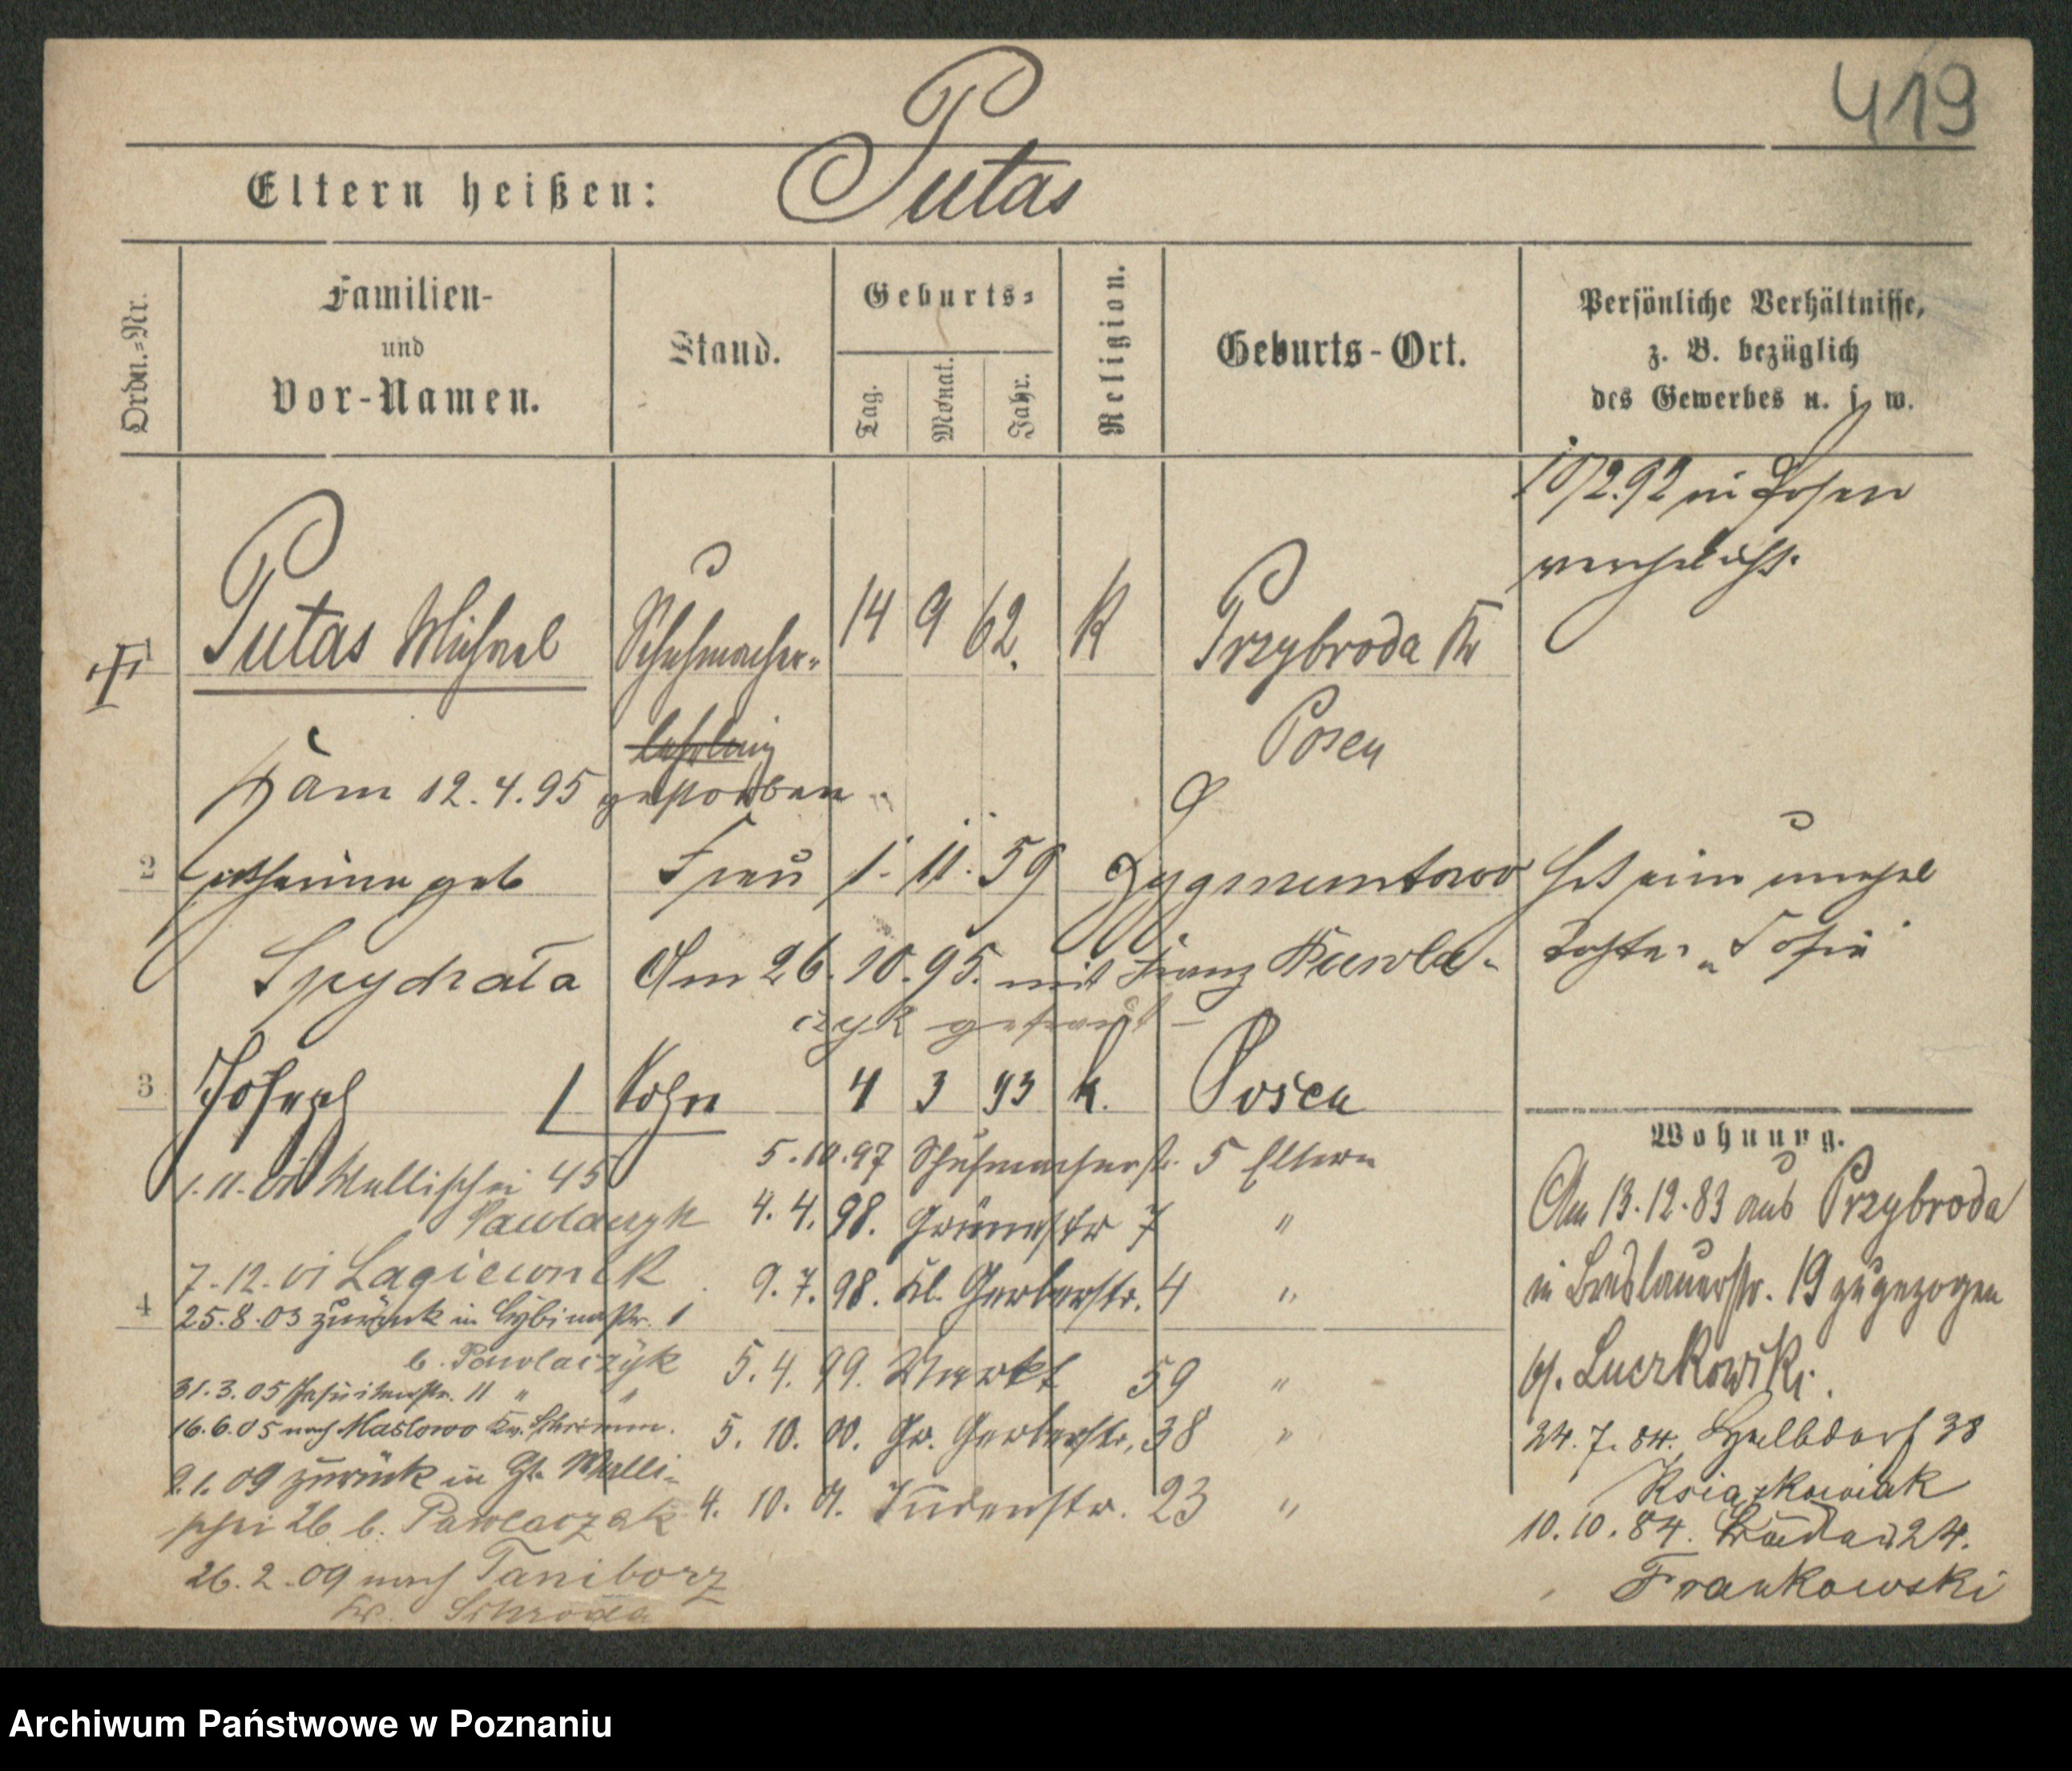 419
Eltern heißen: Putas
Ordn.=Nr.
Familien-
und
Vor-Namen.
Stand.
Geburts=
Tag.
Monat.
Jahr.
Religion.
Geburts-Ort.
Persönliche Verhältnisse,
z. B. bezüglich
des Gewerbes u. s. w.
10/2.92 in Posen
verehelicht.
1 Putas Michael Schuhmacher- 14 9 62. K Przybroda Kr
lehrling Posen
am 12.4.95 gestorben.
2 Catharina geb Frau 1. 11. 59 Zygmuntowo
Spychała Am 26.10.95. mit Franz Pawla-
czyk getraut
hat eine unehel
Tochter "Sofie"
3 Joseph Sohn 4 3 93 k. Posen
1.11.01 Wallischei 45
Pawlaczyk
7.12.01 Lagiewnik
4 25.8.03 zurück in Cybinastr. 1
b. Pawlaczyk
31.3.05 Jesuitenstr. 11 " "
16.6.05 nach Maslowo Kr. Schrimm.
9.1.09 zurück in Gr. Walli-
schei 26 b. Pawlaczak
26.2.09 nach Taniborz
Kr. Schroda
5.10.97 Schuhmacherstr. 5 Eltern
4.4.98. Grünestr 7 "
9.7.98. Kl. Gerberstr. 4 "
5.4.99. Markt 59 "
5.10.00. Gr. Gerberstr. 38 "
4.10.01. Judenstr. 23 "
Wohnung.
Am 13.12.83 aus Przybroda
in Breslauerstr. 19 zugezogen
bei Luczkowski.
24.7.84. Halbdorf 38
Ksiazkowiak
10.10.84. 24.
Frankowski
Archiwum Państwowe w Poznaniu